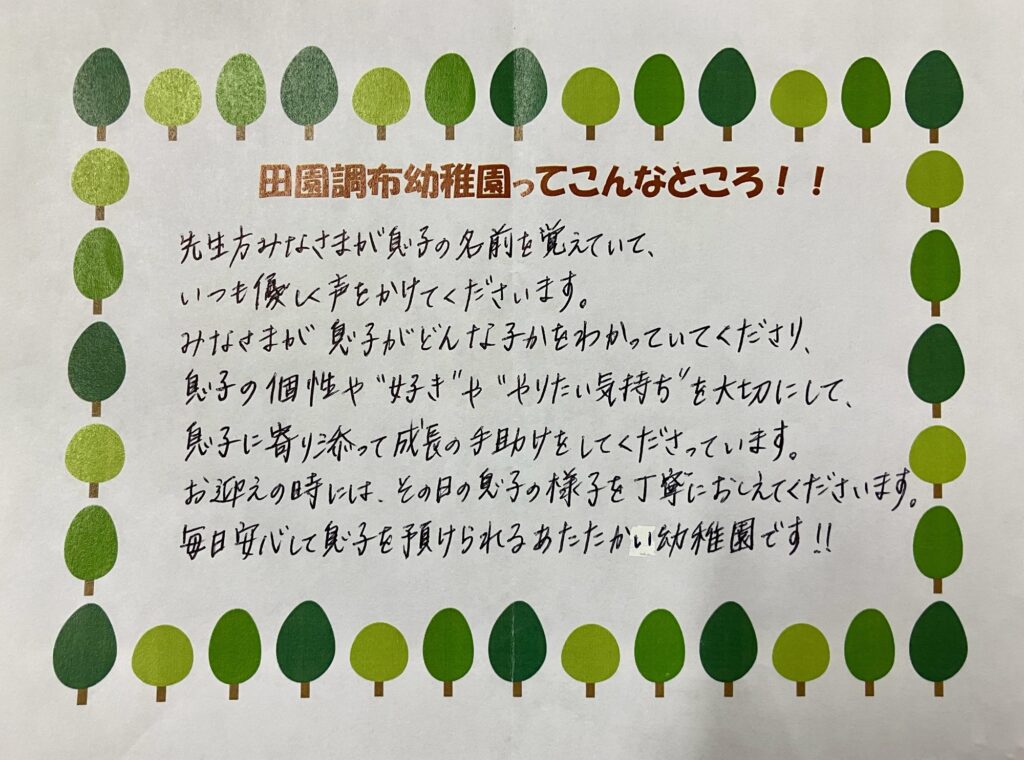 田園調布幼稚園ってこんなところ！！
先生方みなさまが息子の名前を覚えていて、
いつも優しく声をかけてくださいます。
みなさまが息子がどんな子かをわかっていてくださり、
息子の個性や"好き"や"やりたい気持ち"を大切にして、
息子に寄り添って成長の手助けをしてくださっています。
お迎えの時には、その日の息子の様子を丁寧におしえてくださいます。
毎日安心して息子を預けられるあたたかい幼稚園です!!